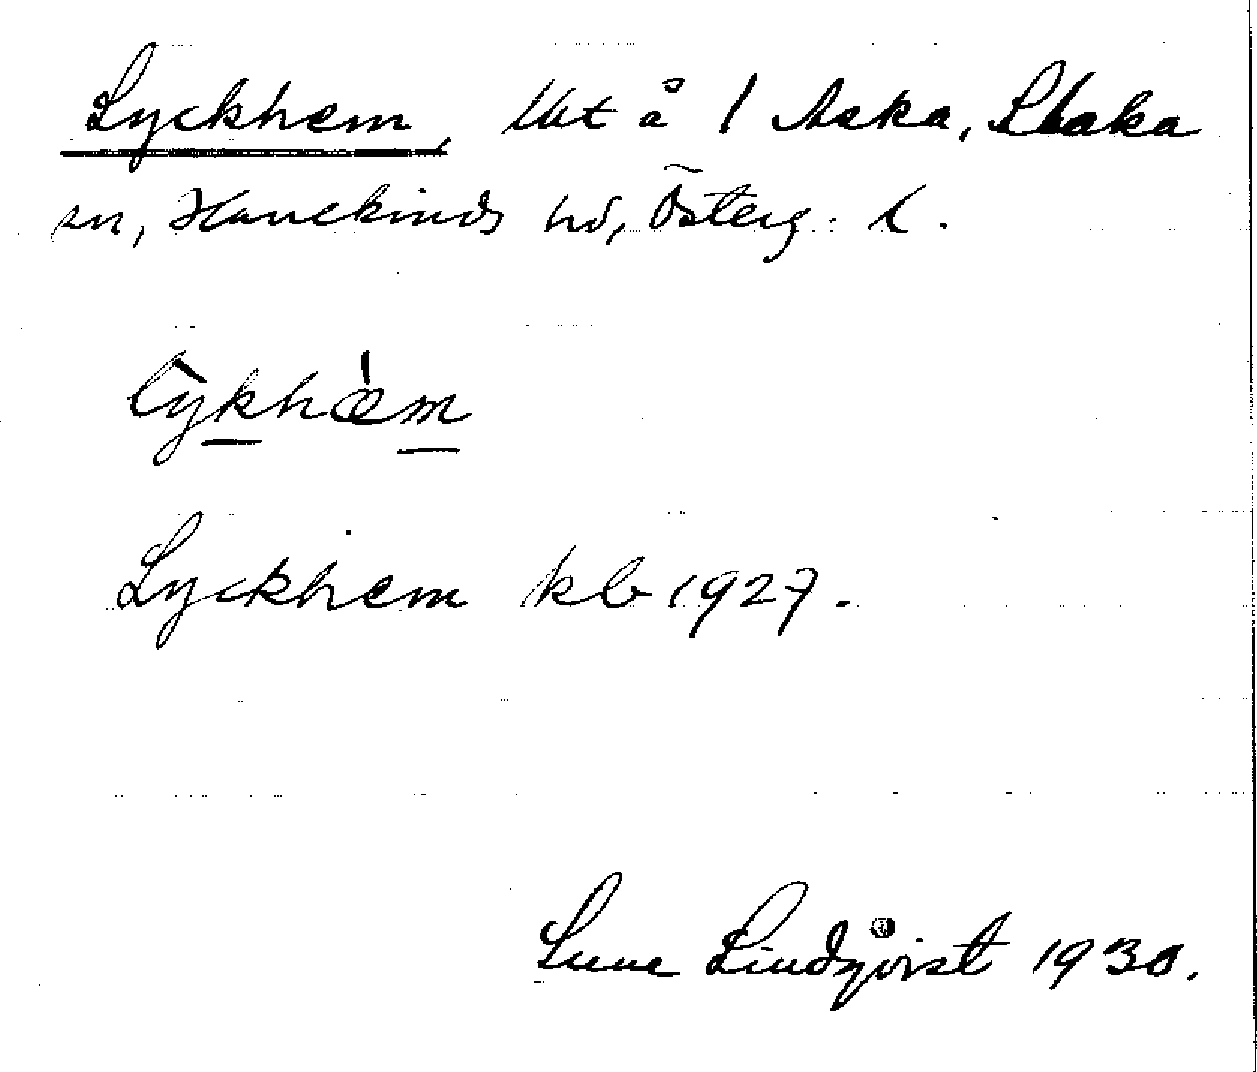 Lyckhem, lht å 1 Aska, Slaka
sn, Hanekinds hd, Österg. l.
lỳkhæ̀m
Lyckhem kb 1927.
Sune Lindqvist 1930.